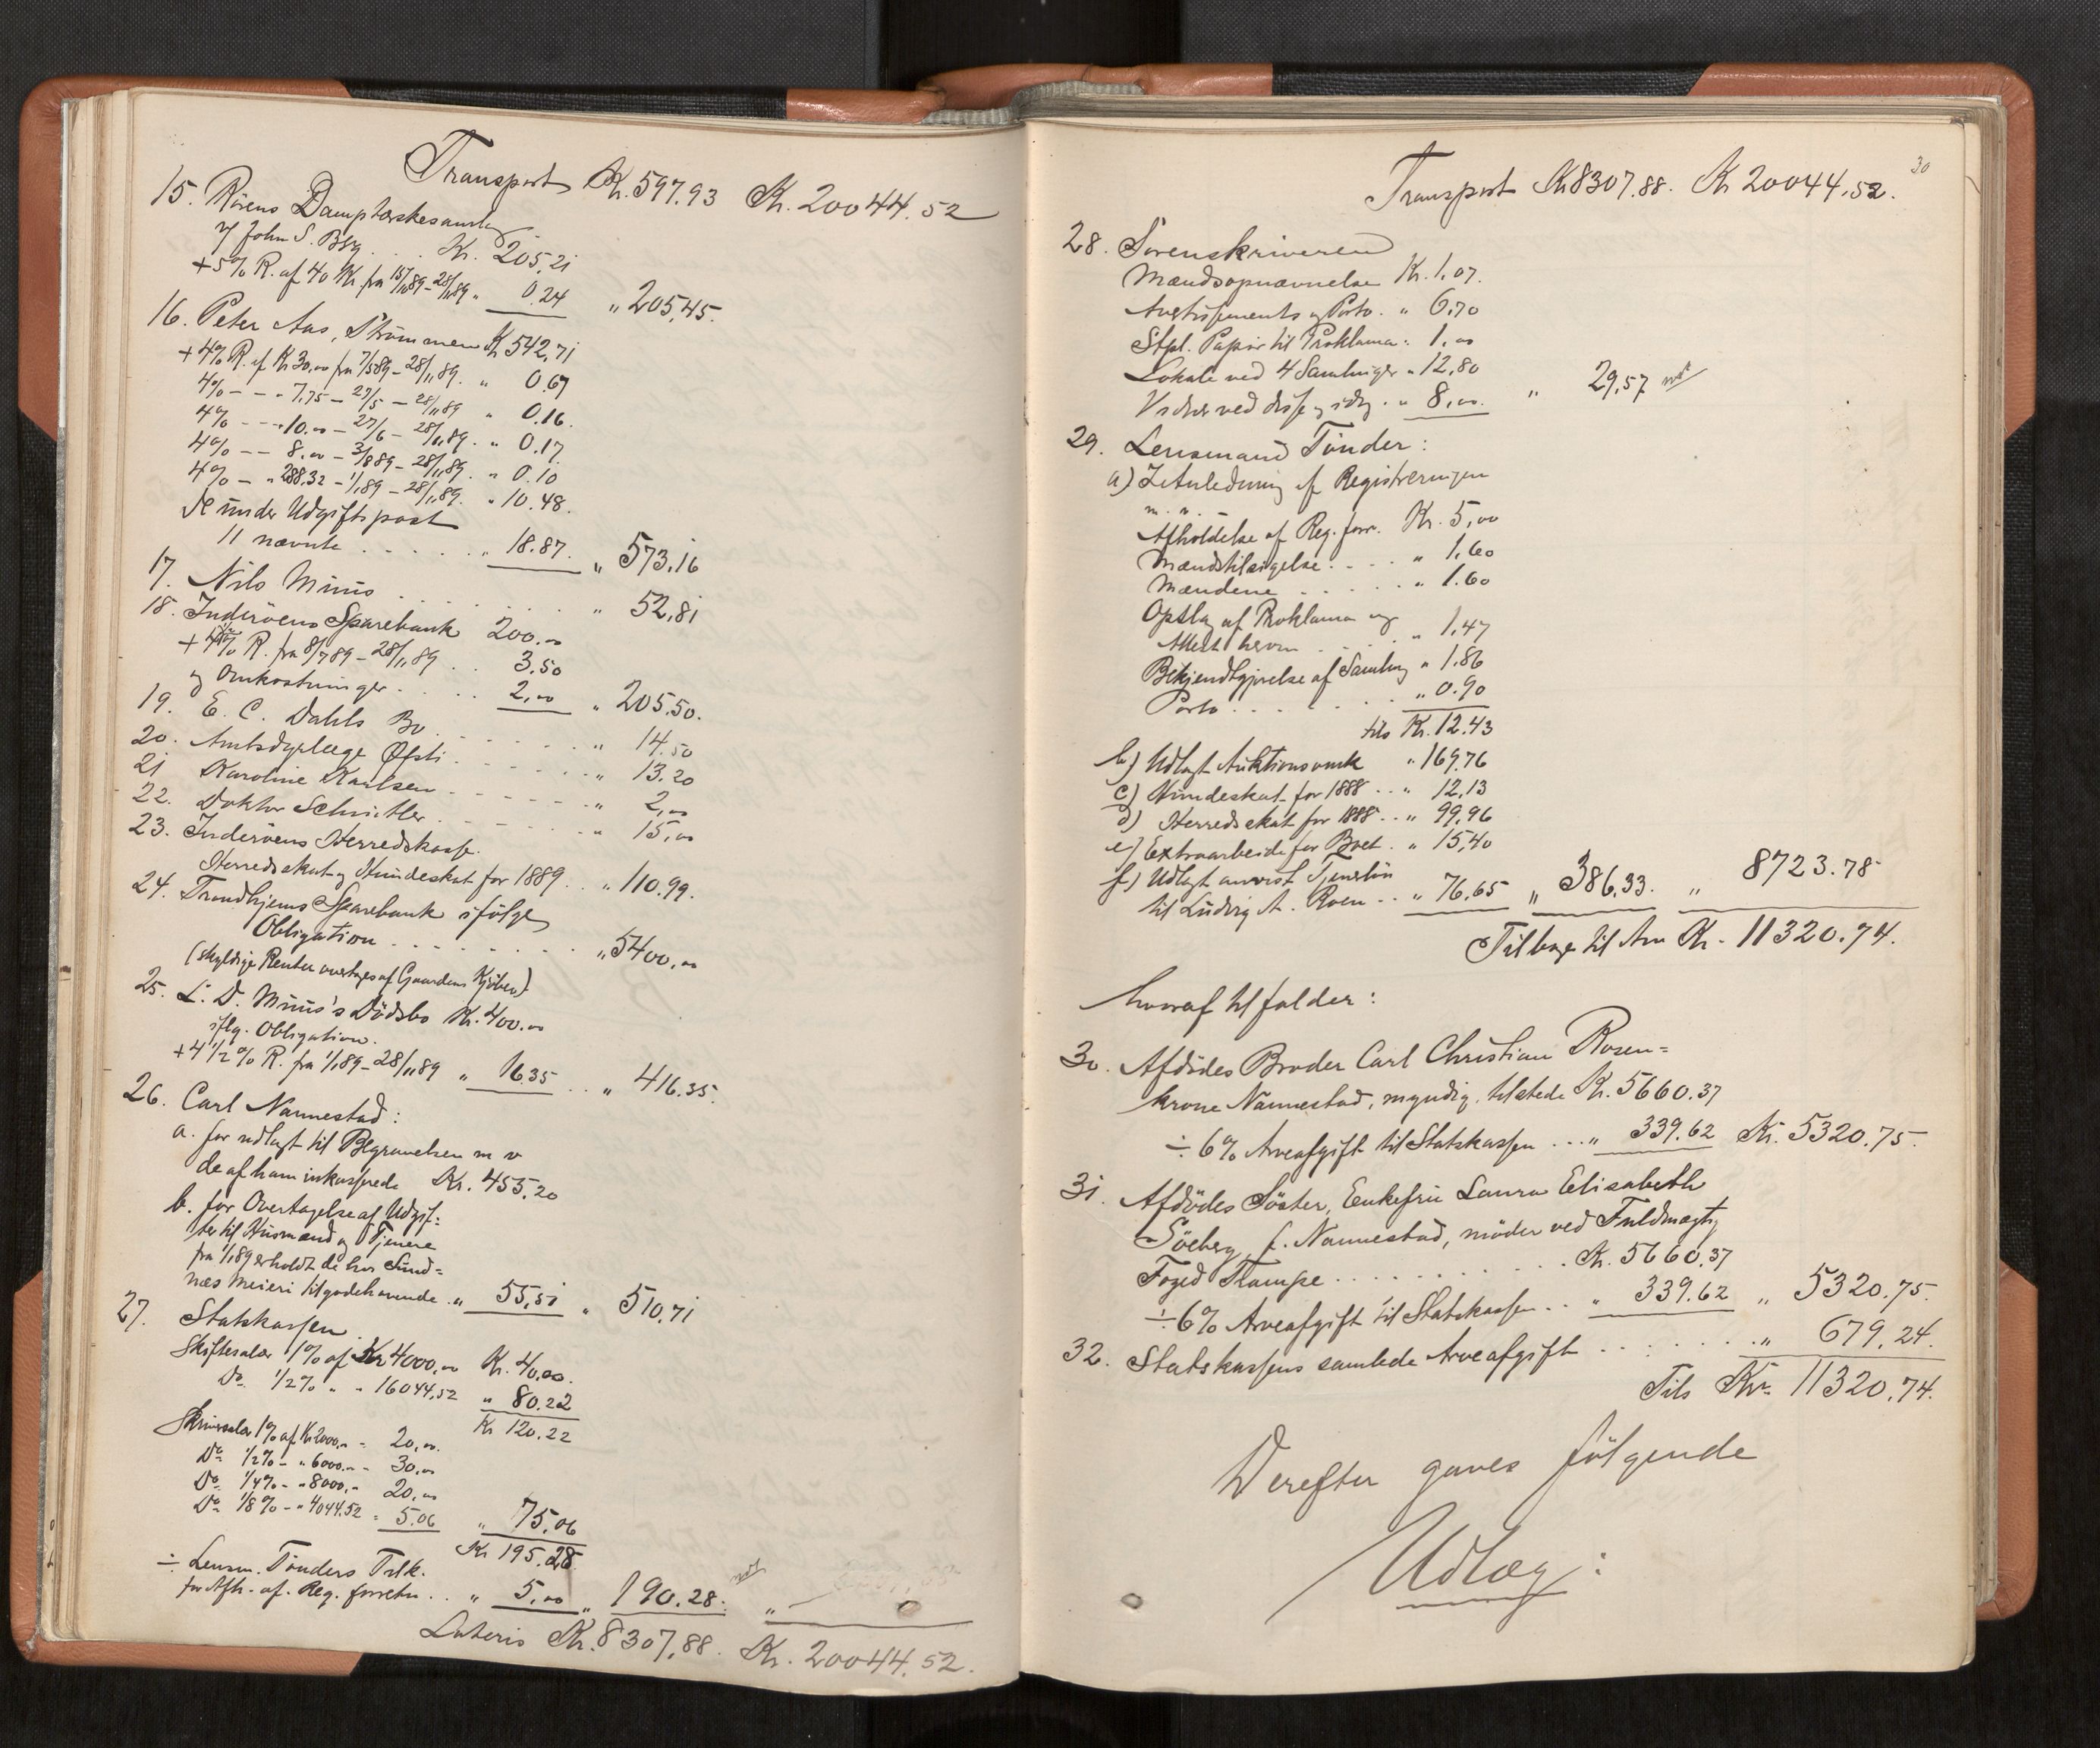 Transport Kr. 597.93 Kr. 20044.52
15. Rörens Damptærskesamlag
v/ John S. By . . . Kr. 205,21
+ 5% R. af 40 Kr. fra 15/10 89 - 28/11 89 " 0.24 " 205,45.
16. Peter Aas, Strömmen Kr. 542,71
+ 4% R. af Kr 30,00 fra 7/5 89 - 28/11 89. " 0.67
4% - - - 7,75 - 27/5 - 28/11 89 " 0.16.
4% - - - 10.00 - 27/6 - 28/11 89. " 0.17.
4% - - 8,00 - 3/8 89 - 28/11 89. " 0.10
4% - " 288.32 - 1/1 89 - 28/11 89. " 10.48.
de under Udgiftspost
11 nævnte . . . . . " 18.87. " 573,16
17. Nils Muus . . . . . . . " 52,81
18. Inderöens Sparebank 200.00
+ 4 1/2% R. fra 8/7 89 - 28/11 89 . . 3,50
og Omkostninger . . . . 2,00 " 205.50.
19. E. C. Dahls Bo . . . . . . " 14.50
20. Amtsdyrlæge Øfsti . . . . . . " 13.20
21 Karoline Karlsen . . . . . . " 2,00
22. Doktor Schnitler . . . . . . " 15,00
23. Inderöens Herredskasse.
Herredsskat og Hundeskat for 1889 . . " 110.99.
24. Trondhjems Sparebank ifölge
Obligation . . . . . . . . . " 5400,00
(skyldige Renter overtages af Gaardens Kjöber)
25. L. D. Muus's Dödsbo Kr. 400.00
iflg. Obligation.
+ 4 1/2% R. fra 1/1 89 - 28/11 89 " 16.35 . . " 416.35.
26. Carl Nannestad:
a. for udlagt til Begravelsen m v
de af ham inkasserede Kr. 455,20
b. for Overtagelse af Udgif=
ter til Husmænd og Tjenere
fra 1/1 89 erholdt de hos Sund=
næs meieri tilgodehavende . " 55,51 " 510,71
27. Statskassen
Skiftesalær 1% af Kr 4000,00 Kr. 40,00.
Do. 1/2% " " 16044,52 " 80.22
Kr 120.22
Skriversalær 1% af Kr 2000,- = 20,00.
Do 1/2% - " 6000.- - 30,00
Do 1/4% - " 8000,- 20,00
Do 1/8% - " 4044.52 = 5.06 " 75,06
Kr 195.28
÷ Lensm. Tönders Tilk.
for Afh. af. Reg. forretn. . . " 5,00 " 190.28. "
Lateris Kr. 8307,88. Kr. 20044.52.
30
Transport Kr 8307.88. Kr 20044,52.
28. Sorenskriveren
Mændsopnævnelse Kr. 1,07.
Avertisements og Porto . " 6,70
Stpl. Papir til Proklama . 1,00
Lokale ved 4 Samlinger " 12,80
Vidner ved disse og idag . " 8,00. " 29,57
29. Lensmand Tönder:
a) I Anledning af Registreringen
m. v. -
Afholdelse af Reg. forr. Kr. 5,00
Mændstilsigelse . . . . " 1,60
Mændene . . . . . . " 1.60
Opslag af Proklama og
Attest herom . . . . " 1,47
Bekjendtgjörelse af Samling " 1.86
Porto . . . . . . . " 0.90
tils Kr. 12.43
b) Udlagt Auktionsomk " 169,76
c) Hundeskat for 1888 . . " 12,13
d) Herredsskat for 1888 . . " 99,96
e) Extraarbeide for Boet . " 15,40
f) Udlagt anvist Tjenerlön
til Ludvig A. Roen . . " 76,65 " 386,33. " 8723.78
Tilbage til Arv Kr. 11320.74.
hvoraf tilfalder:
30. Afdödes Broder Carl Christian Rosen=
krone Nannestad, myndig, tilstede Kr. 5660.37
÷ 6% Arveafgift til Statskassen . . . " 339.62 Kr. 5320.75.
31. Afdödes Söster, Enkefru Laura Elisabeth
Söeberg, f. Nannestad, möder ved Fuldmægtig
Foged Stampe . . . . . . . . . . Kr. 5660.37
÷ 6% Arveafgift til Statskassen . . " 339.62 " 5320.75.
32. Statskassens samlede Arveafgift . . . . . . " 679.24.
Tils Kr. 11320.74.
Derefter gaves fölgende
Udlæg: